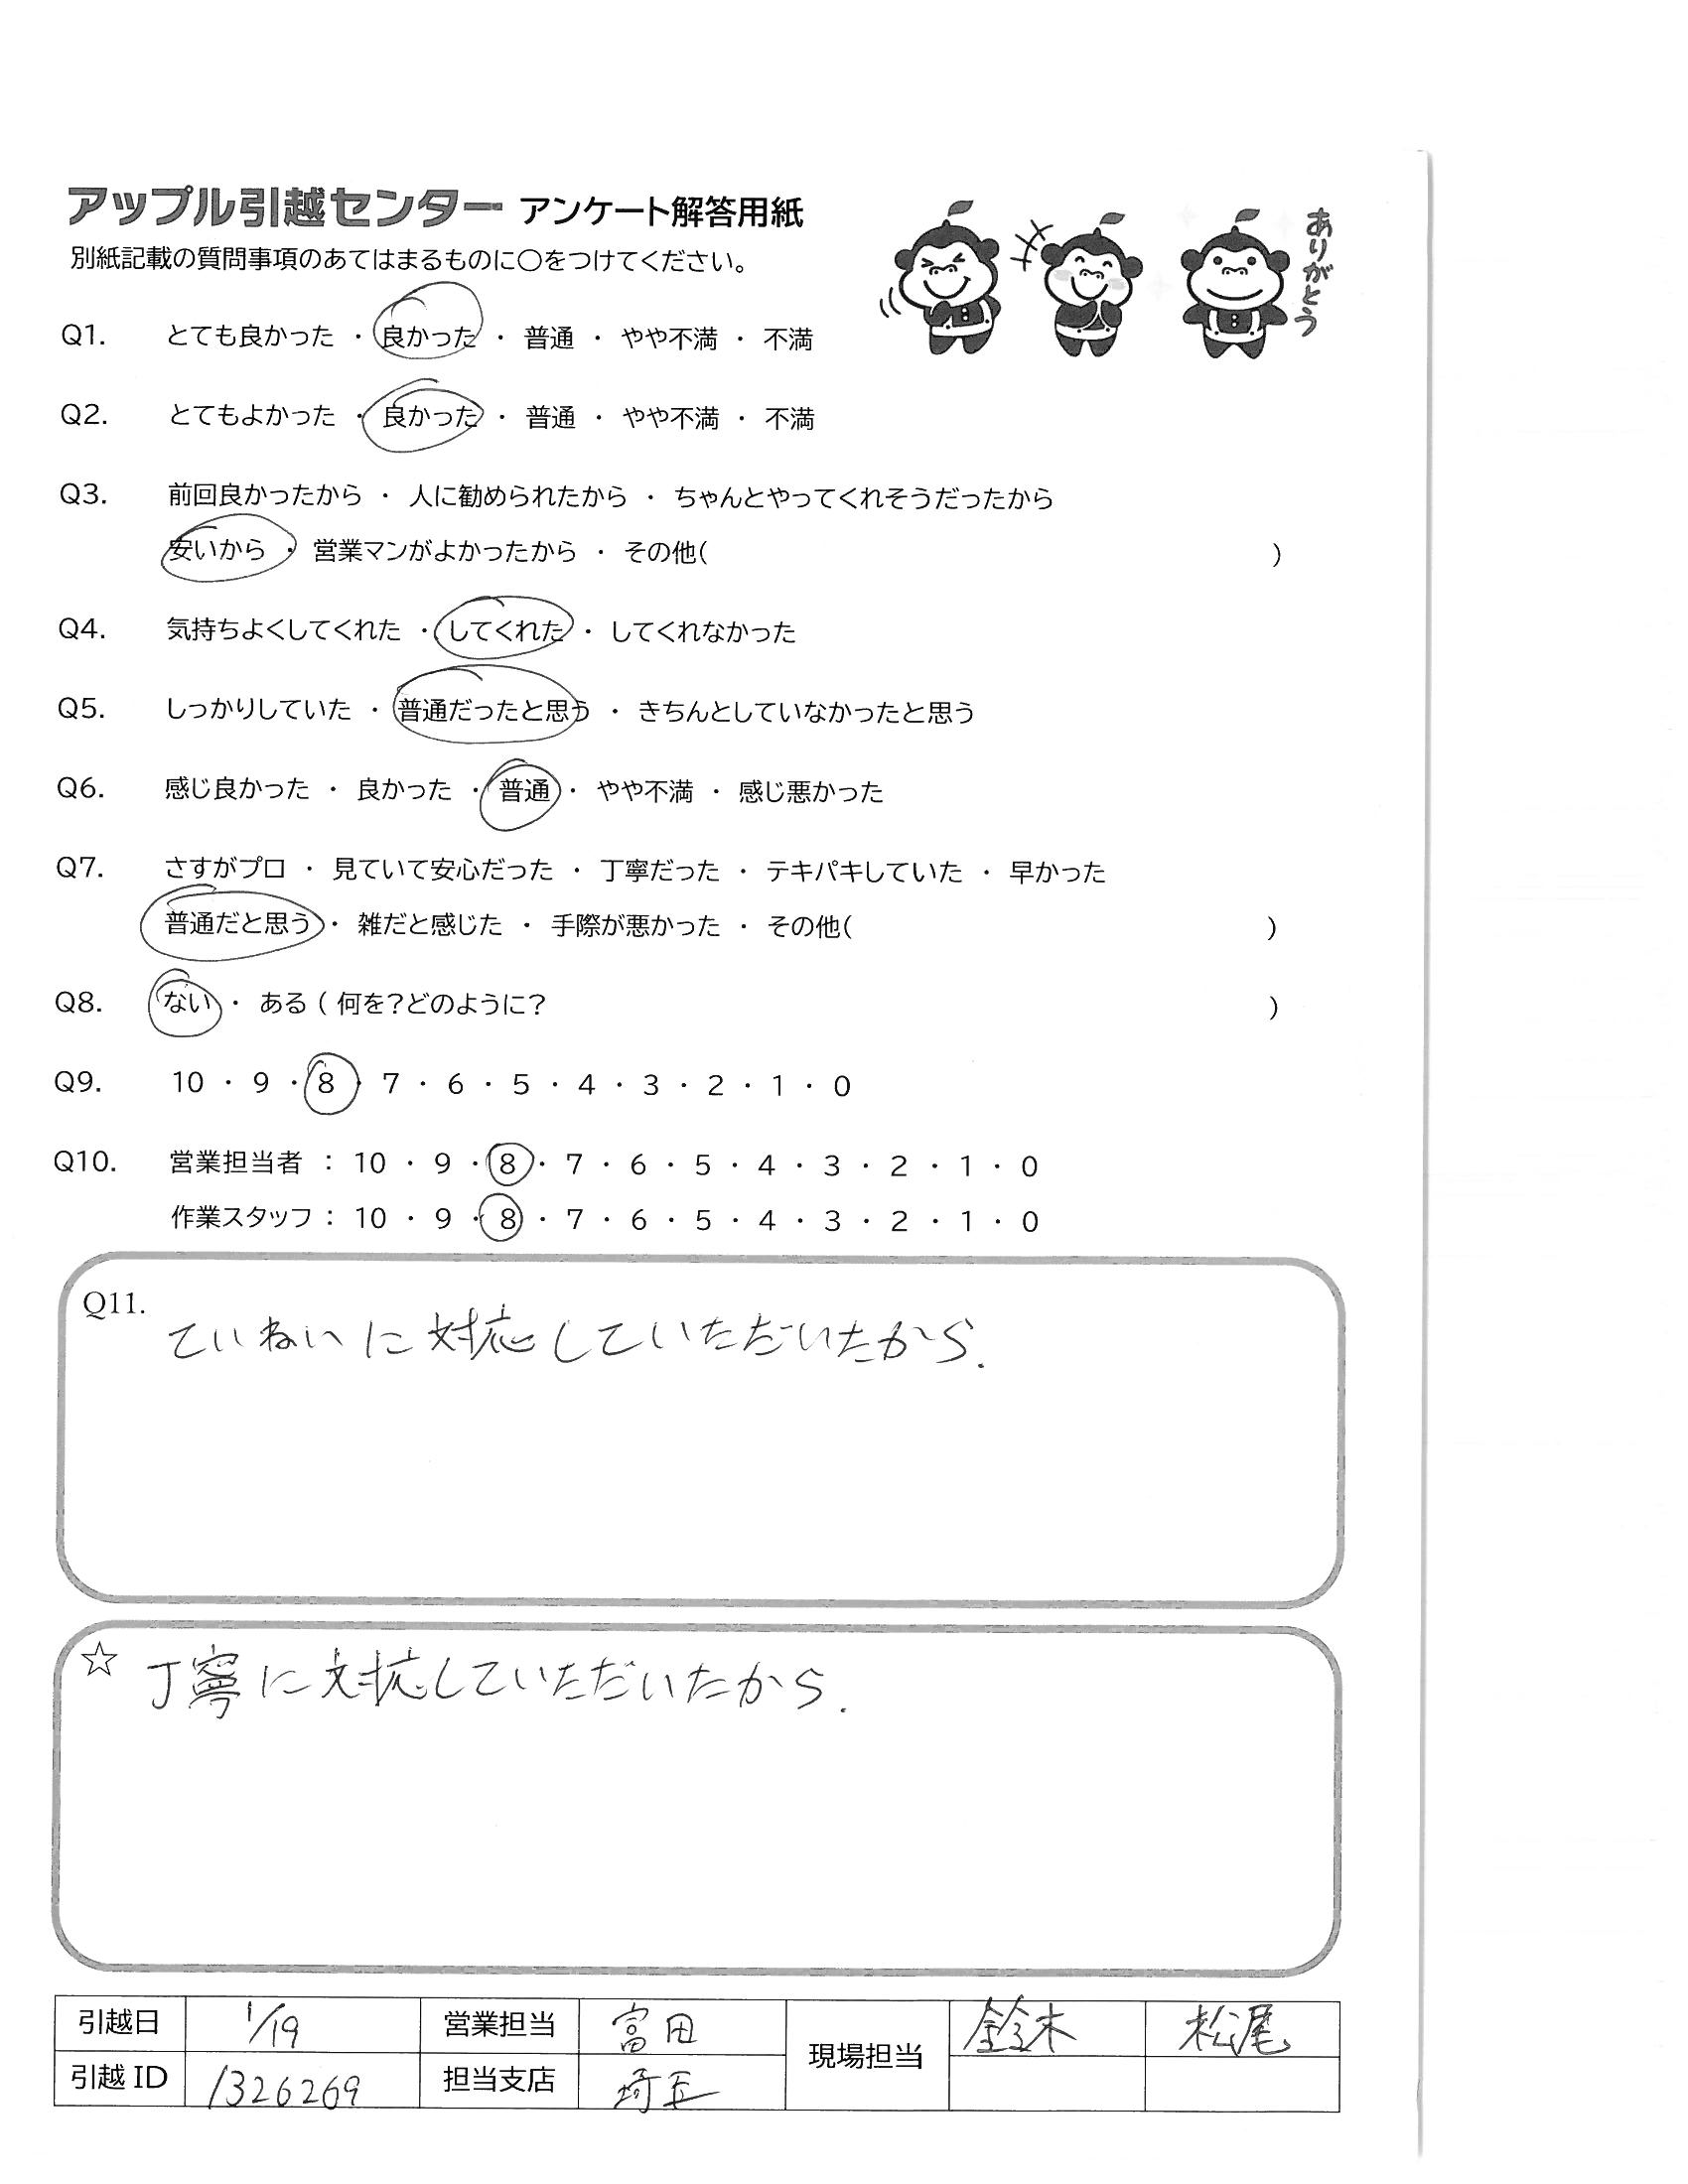 アップル引越センター アンケート解答用紙
別紙記載の質問事項のあてはまるものに○をつけてください。
ありがとう
Q1. とても良かった ・ 良かった ・ 普通 ・ やや不満 ・ 不満
Q2. とてもよかった ・ 良かった ・ 普通 ・ やや不満 ・ 不満
Q3. 前回良かったから ・ 人に勧められたから ・ ちゃんとやってくれそうだったから
安いから ・ 営業マンがよかったから ・ その他( )
Q4. 気持ちよくしてくれた ・ してくれた ・ してくれなかった
Q5. しっかりしていた ・ 普通だったと思う ・ きちんとしていなかったと思う
Q6. 感じ良かった ・ 良かった ・ 普通 ・ やや不満 ・ 感じ悪かった
Q7. さすがプロ ・ 見ていて安心だった ・ 丁寧だった ・ テキパキしていた ・ 早かった
普通だと思う ・ 雑だと感じた ・ 手際が悪かった ・ その他( )
Q8. ない ・ ある ( 何を?どのように? )
Q9. 10 ・ 9 ・ 8 ・ 7 ・ 6 ・ 5 ・ 4 ・ 3 ・ 2 ・ 1 ・ 0
Q10. 営業担当者 : 10 ・ 9 ・ 8 ・ 7 ・ 6 ・ 5 ・ 4 ・ 3 ・ 2 ・ 1 ・ 0
作業スタッフ : 10 ・ 9 ・ 8 ・ 7 ・ 6 ・ 5 ・ 4 ・ 3 ・ 2 ・ 1 ・ 0
Q11.
ていねいに対応していただいたから.
☆ 丁寧に対応していただいたから.
引越日 1/19 営業担当 富田 現場担当 鈴木 松尾
引越ID 1326269 担当支店 埼玉